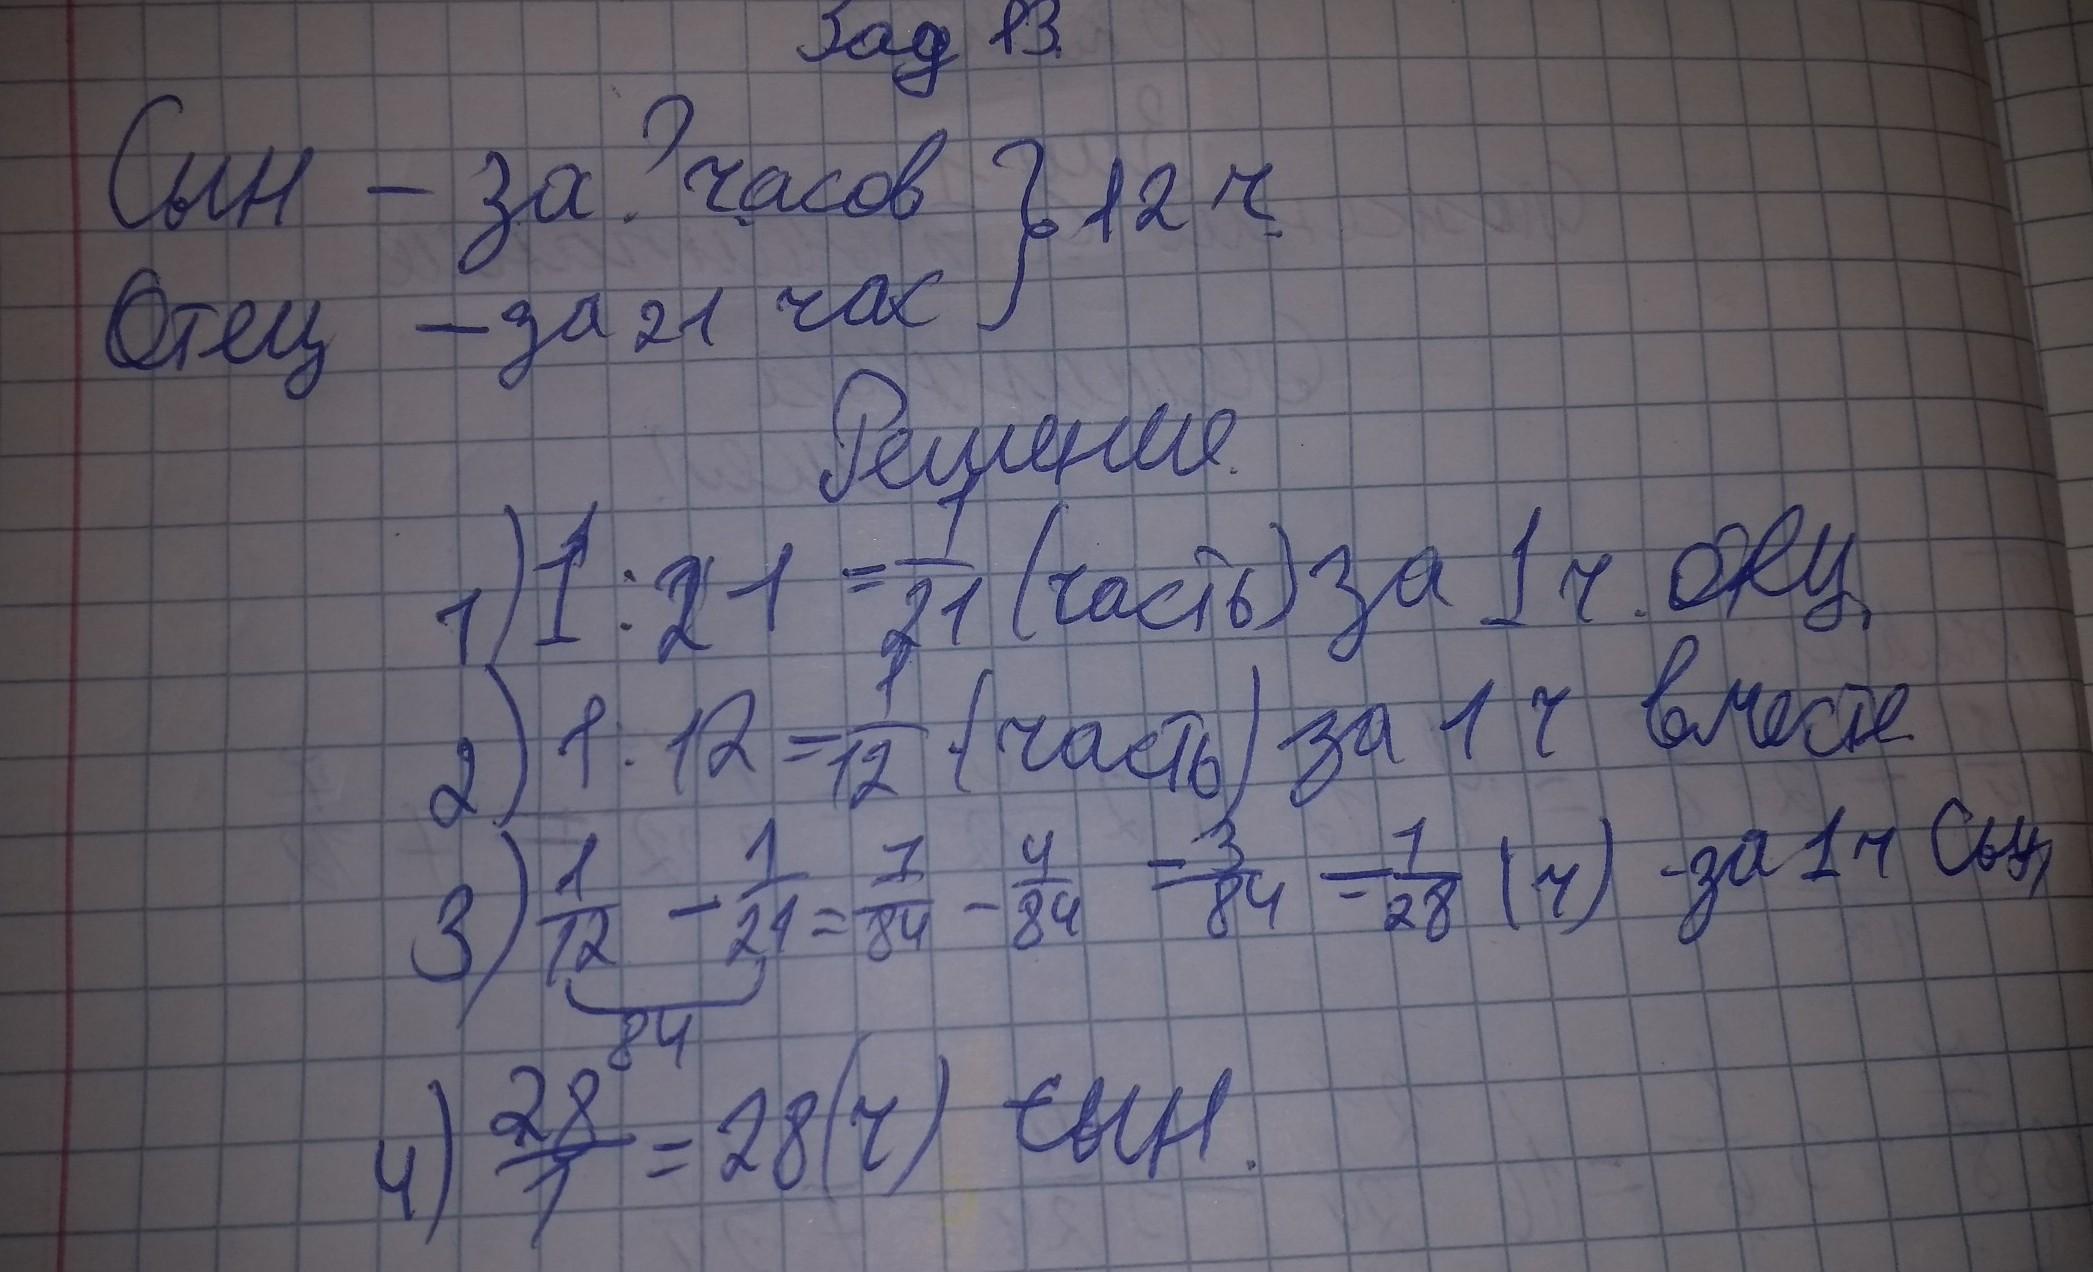 Зад 13.
Сын – за ? часов } 12 ч.
Отец – за 21 час
Решение.
1) 1 : 21 = 1/21 (часть) за 1 ч. отец
2) 1 : 12 = 1/12 (часть) за 1 ч вместе
3) 1/12 – 1/21 = 7/84 – 4/84 = 3/84 = 1/28 (ч) – за 1 ч сын
84
4) 28/1 = 28 (ч) сын.